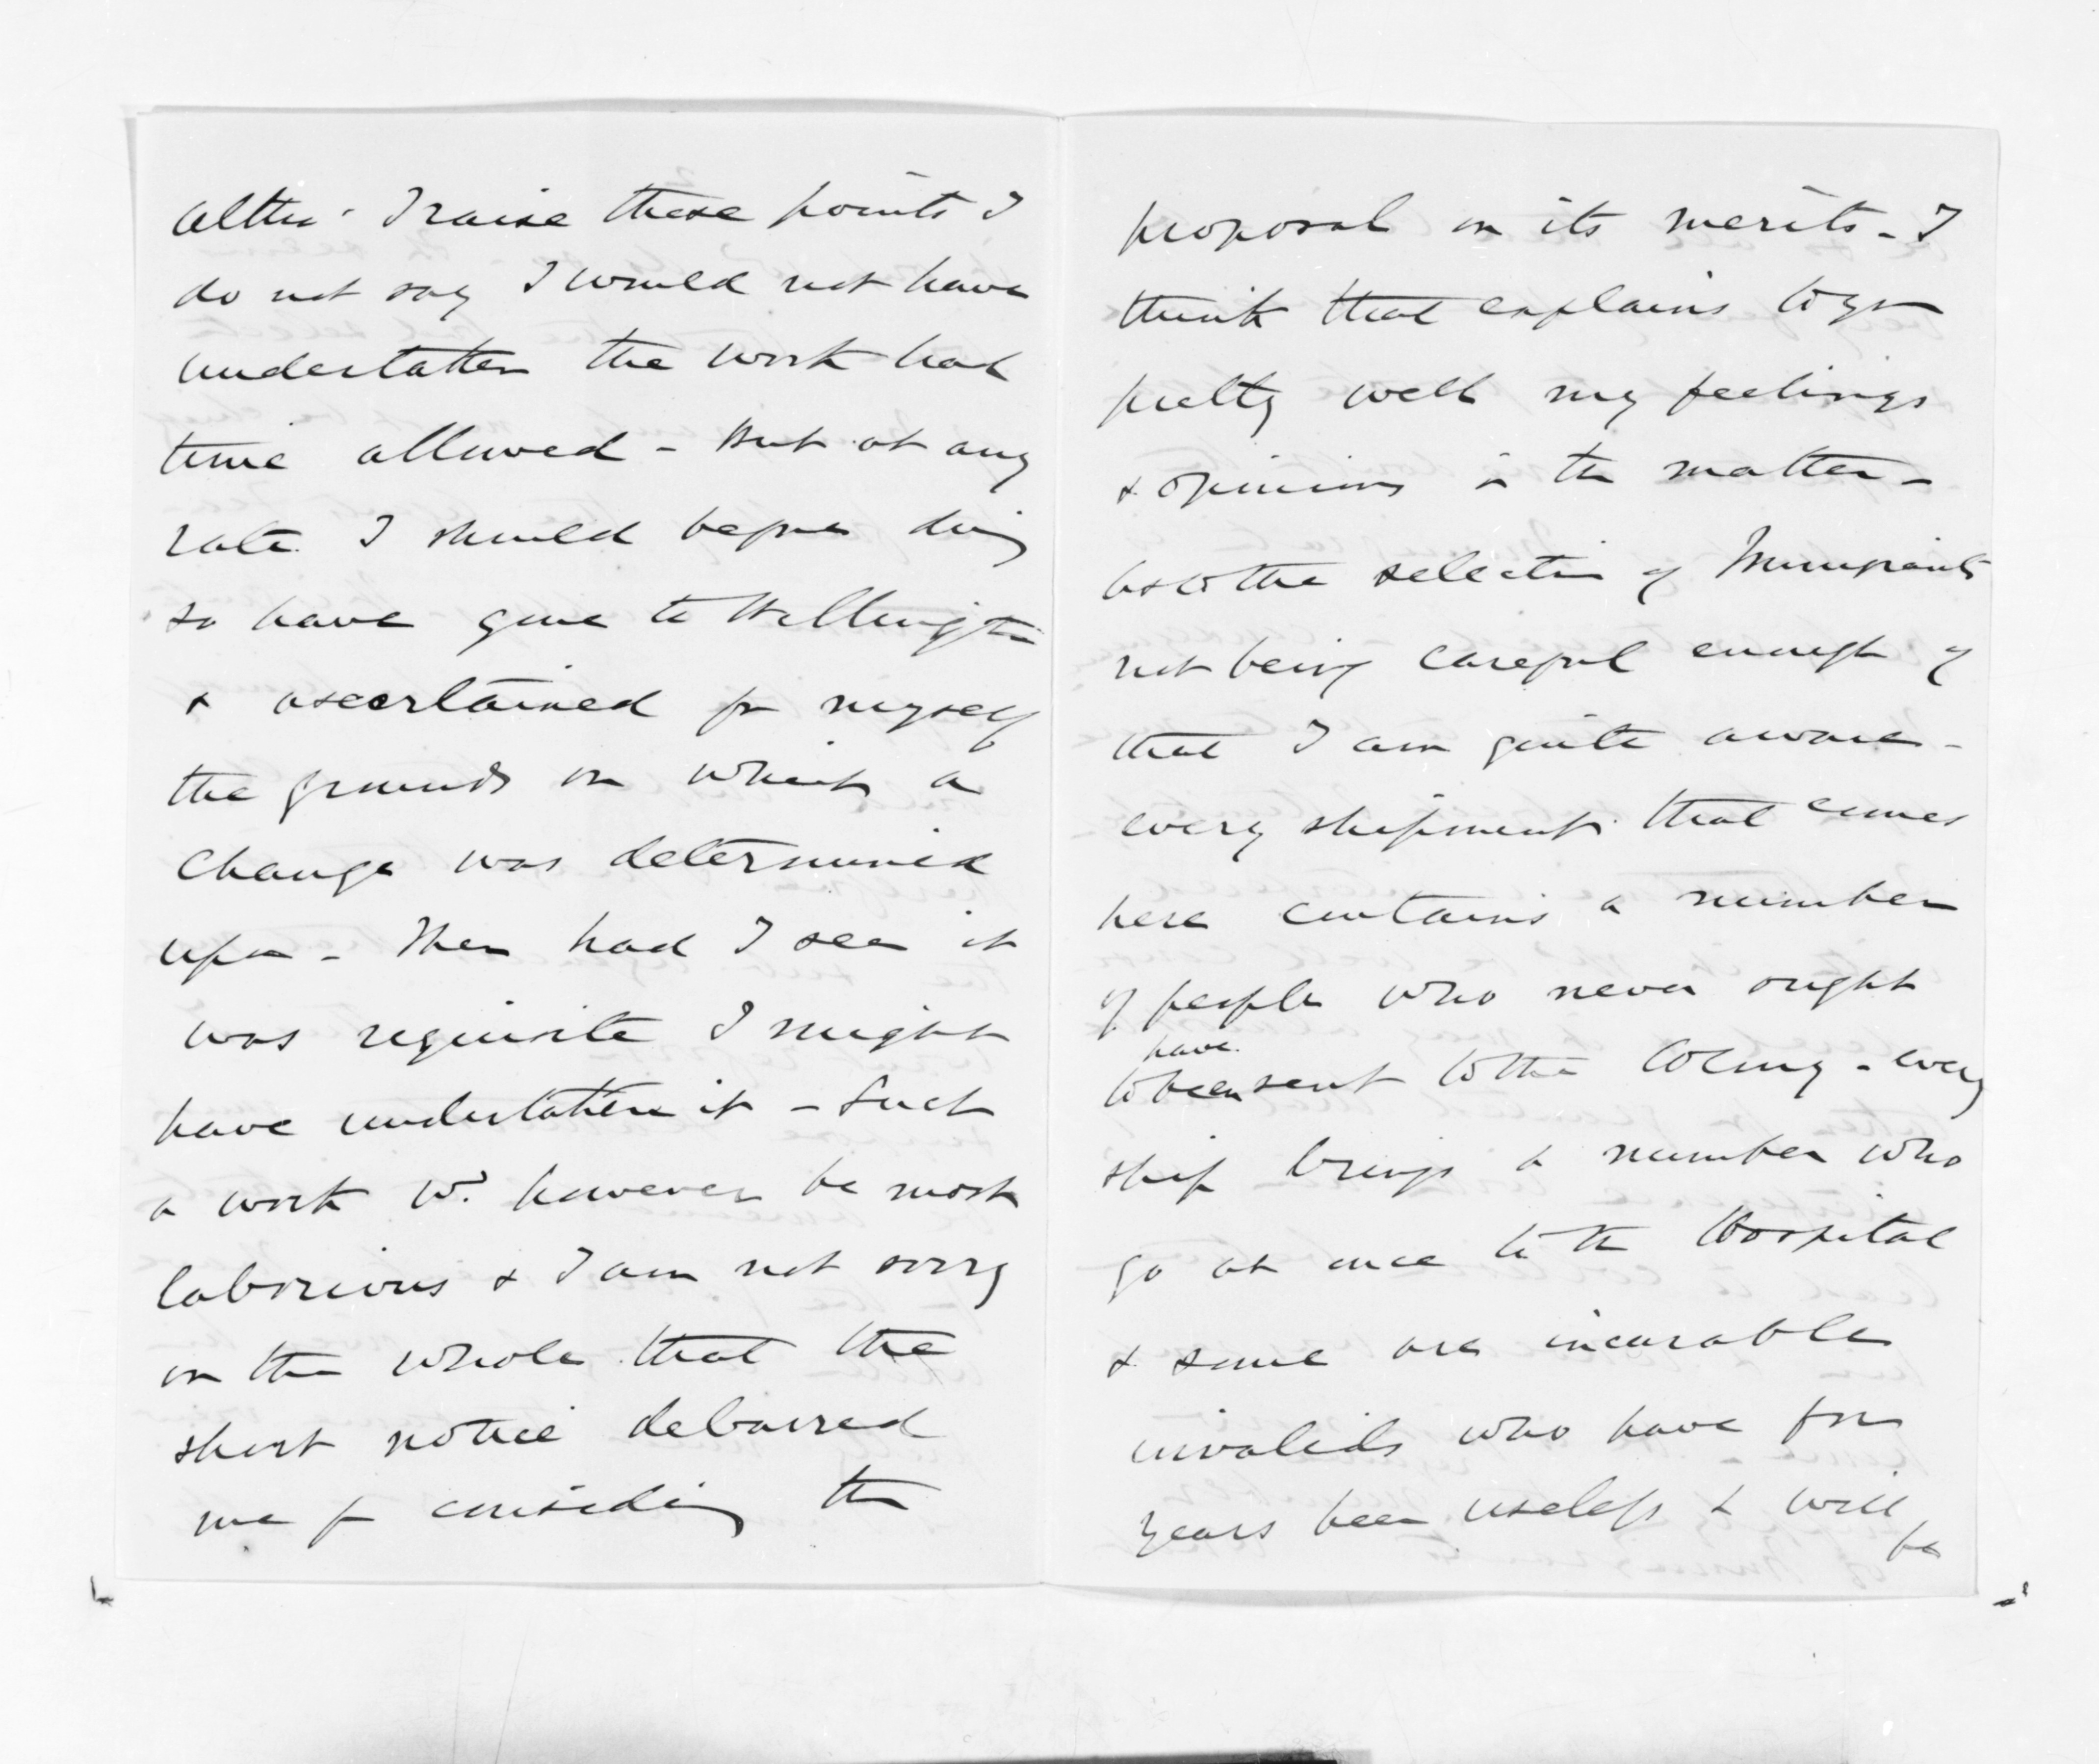 altho' I raise these points I
do not say I would not have
undertaken the work had
time allowed - But at any
rate I should before doing
so have gone to Wellington
& ascertained for myself
the grounds on which a
change was determined
upon - Then had I seen it
was requisite I might
have undertaken it - Such
a work wd. however be most
laborious & I am not sorry
on the whole that the
short notice debarred
me fr considering the
proposal on its merits - I
think that explains to you
pretty well my feelings
& opinions in the matter -
As to the selection of Immigrants
not being careful enough of
that I am quite aware -
every shipment that comes
here contains a number
of people who never ought
have
to been sent to the Colony - every
ship brings a number who
go at once to the Hospital
& some are incurable
invalids who have for
years been useless & will
be